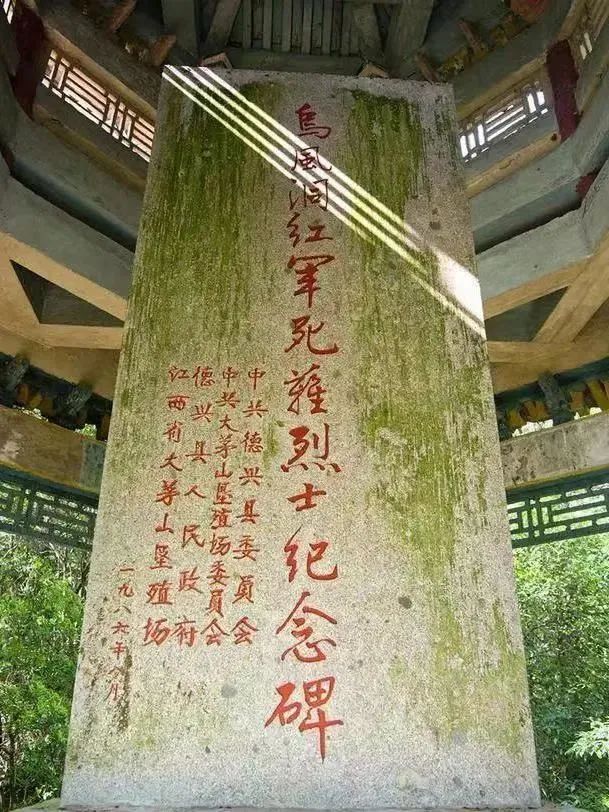 烏風洞红军死難烈士纪念碑
中共德兴县委員会
中共大茅山垦殖场委員会
德兴县人民政府
江西省大茅山垦殖场
一九八六年八月